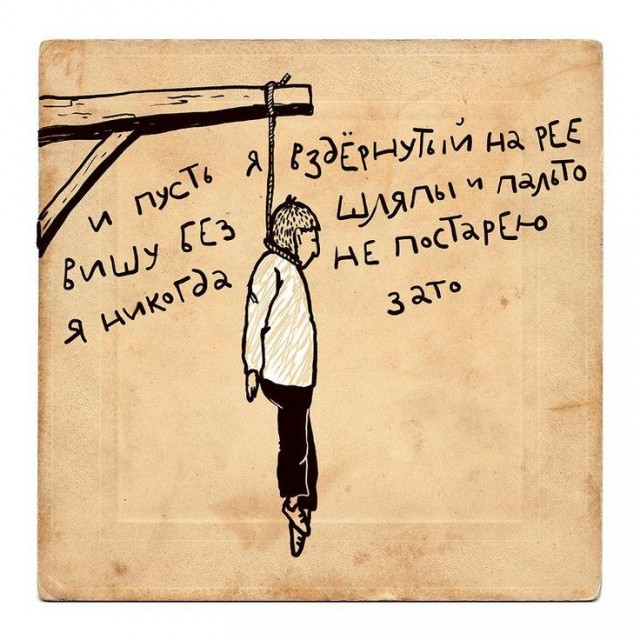 и пусть я вздёрнутый на рее
вишу без шляпы и пальто
я никогда не постарею
зато